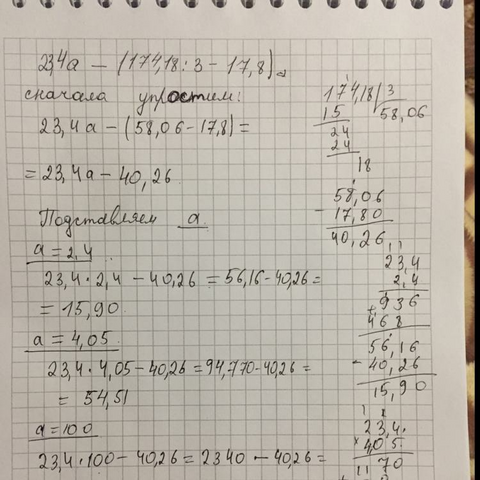 23,4a − (174,18:3 − 17,8)
сначала упростим:
23,4a − (58,06 − 17,8) =
= 23,4a − 40,26
Подставляем a.
a = 2,4
23,4 · 2,4 − 40,26 = 56,16 − 40,26 =
= 15,90
a = 4,05
23,4 · 4,05 − 40,26 = 94,770 − 40,26 =
= 54,51
a = 100
23,4 · 100 − 40,26 = 2340 − 40,26 =
174,18 3
15 58,06
24
24
18
58,06
− 17,80
40,26
23,4
2,4
+ 936
468
56,16
− 40,26
15,90
23,4
× 4,05
1170